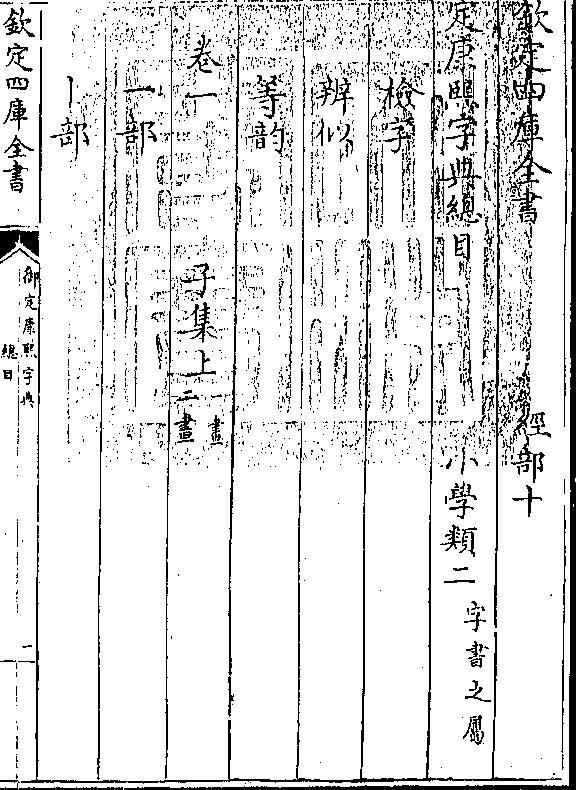 欽定四庫全書 經部十
定康熙字典總目 小學類二 字書之屬
檢字
辨似
等韵
卷一 子集上 一畫 二畫
一部
丨部
欽定四庫全書
御定康熙字典
總目
一